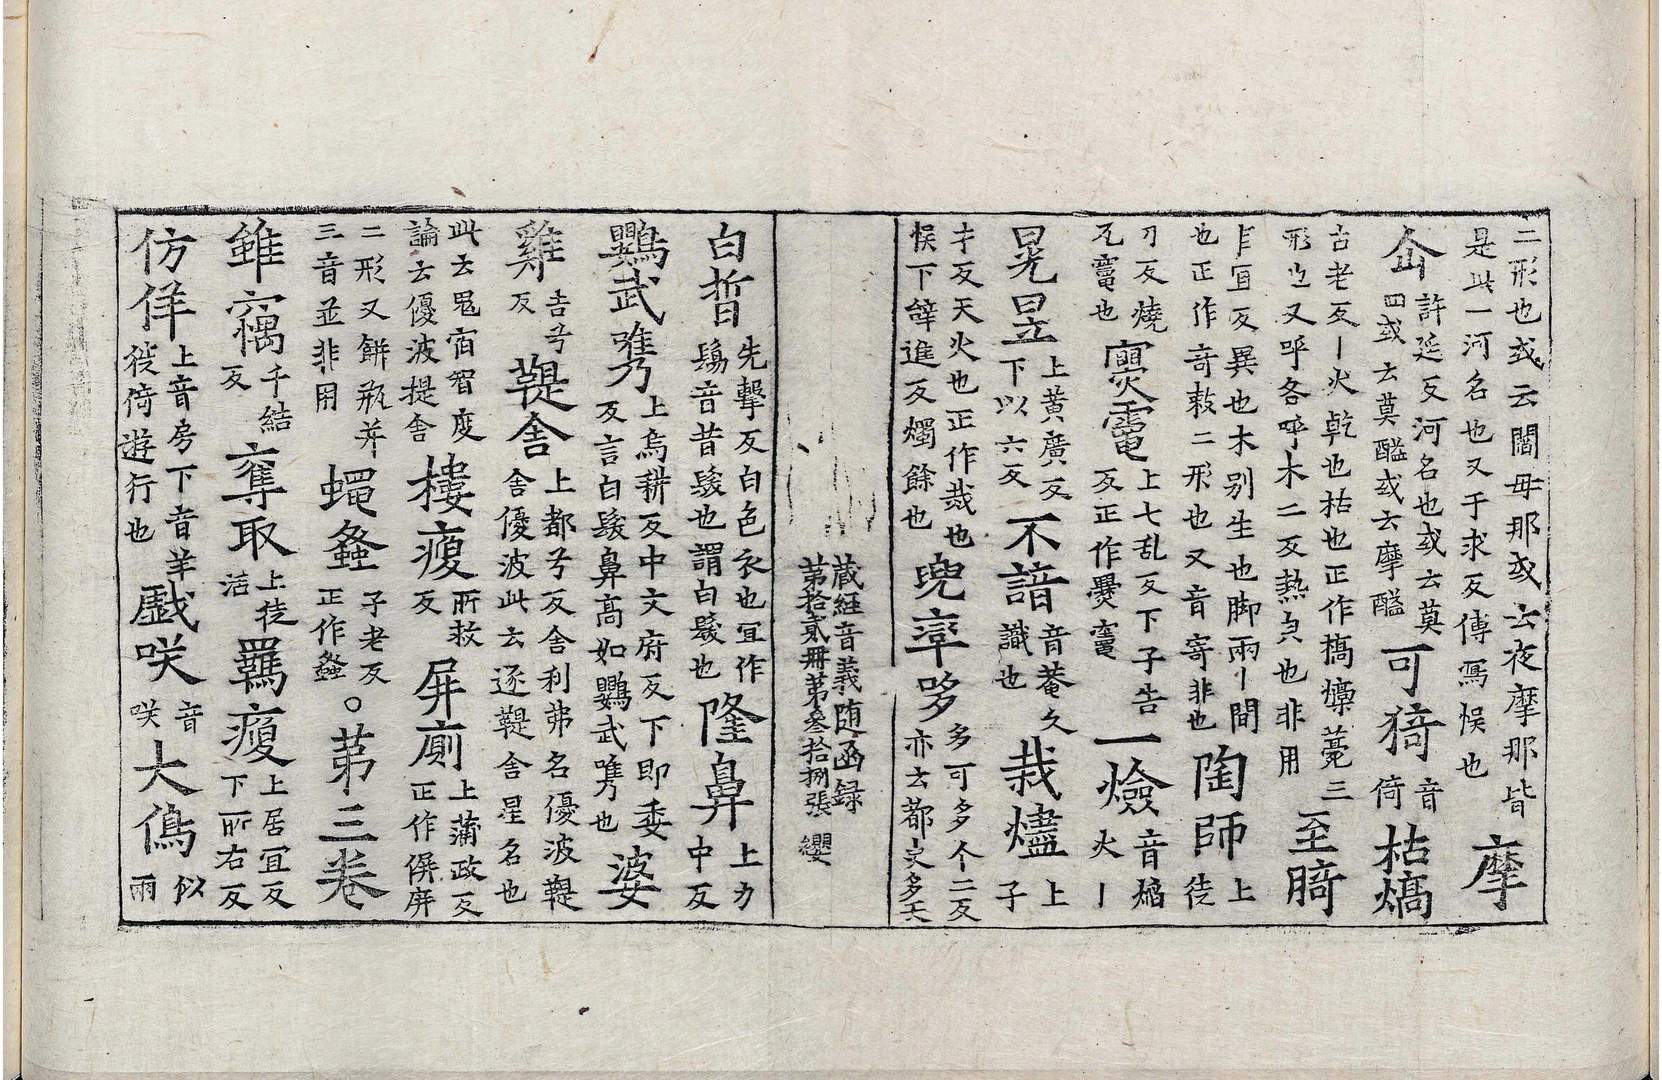 二形也或云閻毋那或云夜摩那皆
是此一河名也又于求反傳寫悮也
摩
㕣
許延反河名也或云莫
四或云莫醯或云摩醯
可猗
音
倚
枯熇
古老反丨火乹也枯也正作槁燺薧三
形也又呼各呼木二反熱皃也非用
至𦜔
丘冝反異也木别生也脚兩丨間
也正作竒㩻二形也又音寄非也
陶師
上
徒
刀反燒
瓦竃也
㷊竃
上七乱反下子告
反正作爨竈
一燄
音焰
火丨
晃昱
上黄廣反
下以六反
不諳
音菴久
識也
栽燼
上
子
才反天火也正作烖也
悮下夆進反燭餘也
兜率哆
多可多个二反
亦云都史多天
蔵經音義随函録
第拾貳冊第叁拾捌張 纓
白晳
先擊反白色衣也冝作
䯱音昔髲也謂白髲也
隆鼻
上力
中反
鸚武嘴
上烏耕反中文府反下即委
反言白髲鼻高如鸚武嘴也
婆
雞
古兮
反
鞮舍
上都兮反舍利弗名優波鞮
舍優波此云逐鞮舍星名也
此云鬼宿智度
論云優波提舍
樓瘦
所救
反
屏廁
上蒲政反
正作偋屏
二形又餅瓶并
三音並非用
蠅螽
子老反
正作螽
○第三卷
雖竊
千結
反
奪取
上徒
活
羈瘦
上居冝反
下所右反
仿佯
上音房下音羊
徙倚遊行也
戱咲
音
咲
大㑄
似
兩